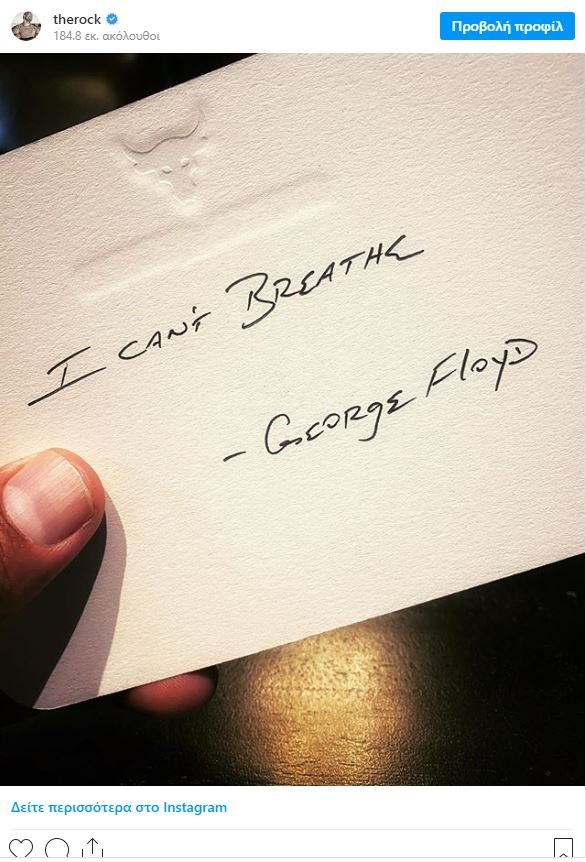 therock
184.8 εκ. ακόλουθοι
Προβολή προφίλ
I CAN'T BREATHE
- GEORGE FloyD
Δείτε περισσότερα στο Instagram